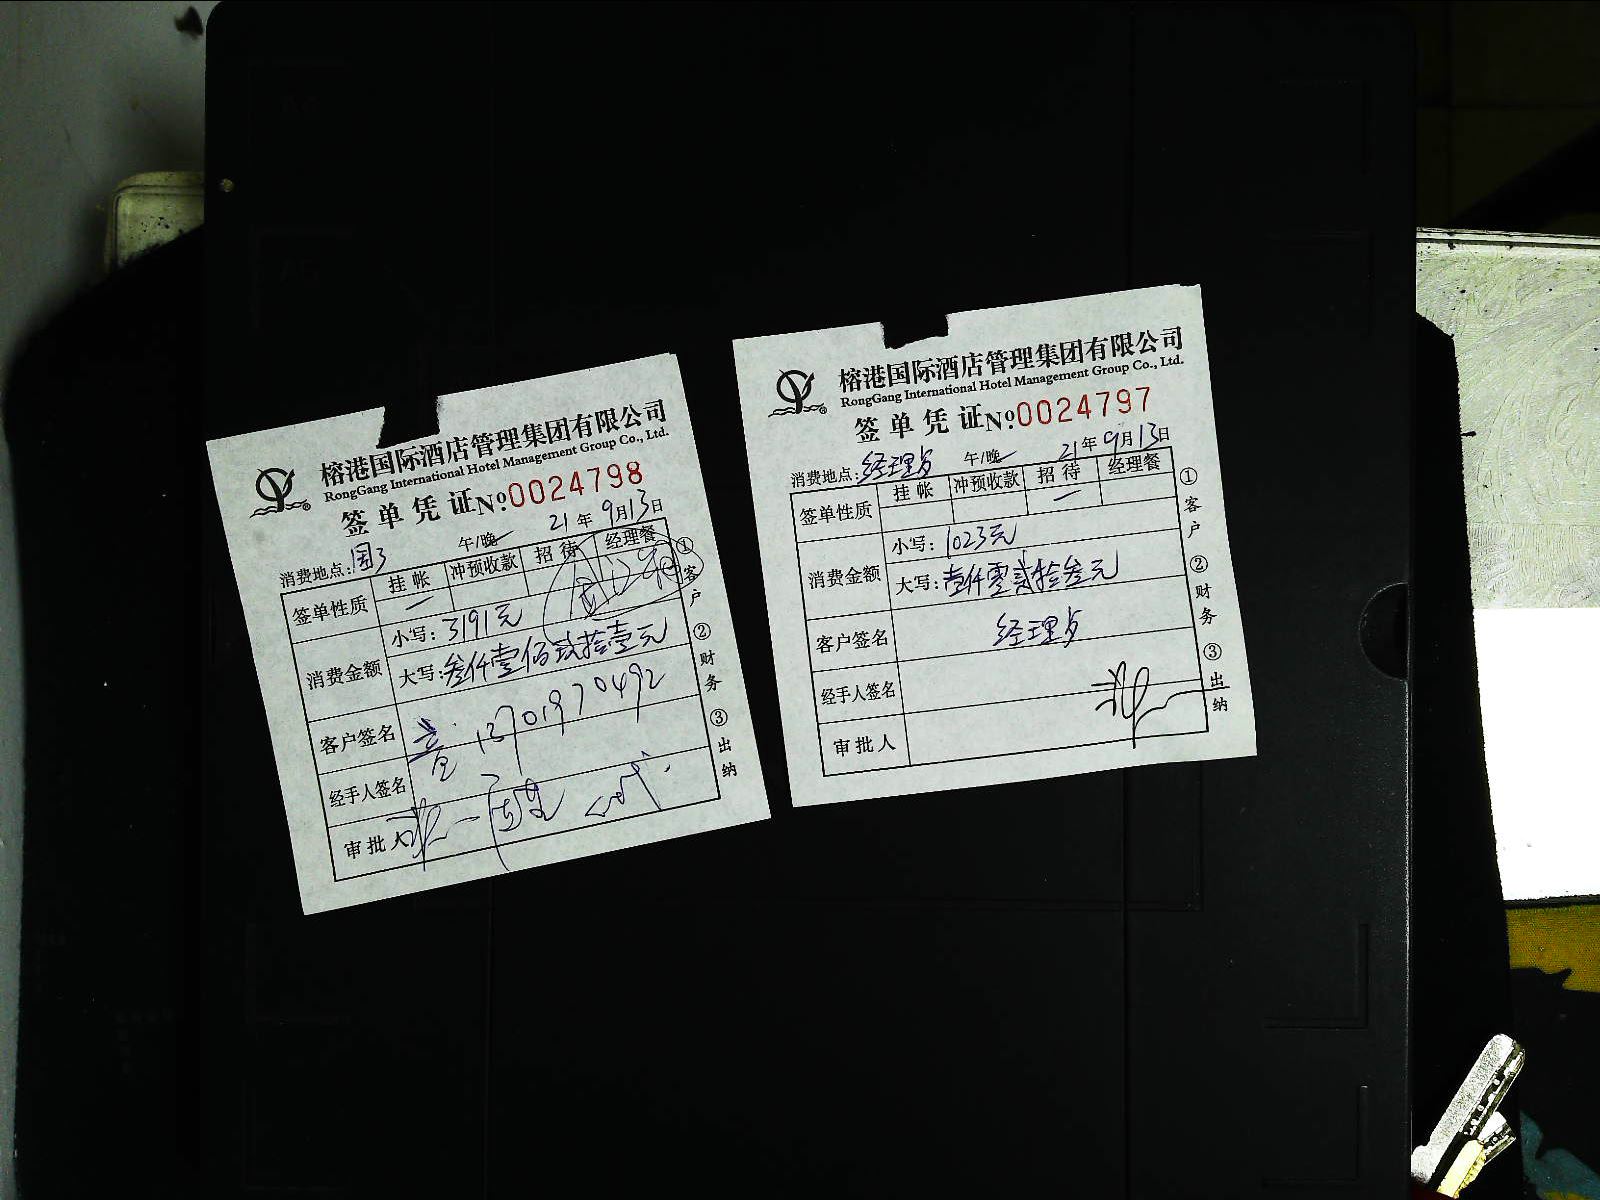 榕港国际酒店管理集团有限公司
RongGang International Hotel Management Group Co., Ltd.
签单凭证 №0024798
消费地点: 国3 午/晚 21年9月13日
签单性质 挂帐 冲预收款 招待 经理餐
消费金额 小写: 3191元
大写: 叁仟壹佰玖拾壹元
客户签名
经手人签名
审批人
①客户 ②财务 ③出纳
榕港国际酒店管理集团有限公司
RongGang International Hotel Management Group Co., Ltd.
签单凭证 №0024797
消费地点: 经理 午/晚 21年9月13日
签单性质 挂帐 冲预收款 招待 经理餐
消费金额 小写: 1023元
大写: 壹仟零贰拾叁元
客户签名 经理
经手人签名
审批人
①客户 ②财务 ③出纳